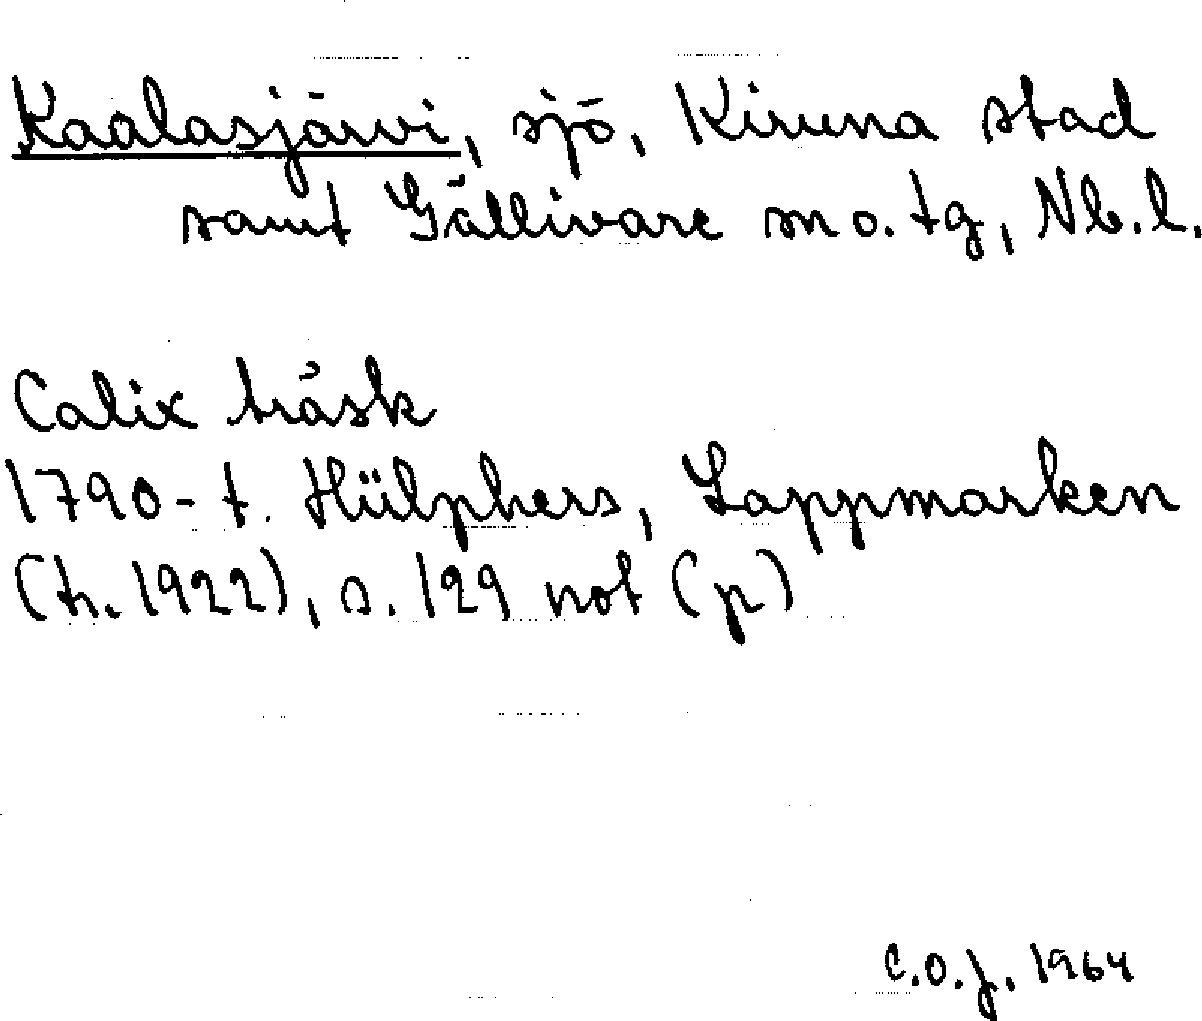 Kaalasjärvi, sjö, Kiruna stad
samt Gällivare sn o. tg, Nb. l.
Calix träsk
1790-t. Hülphers, Lappmarken
(tr. 1922), s. 129 not (p)
C.O.J. 1964